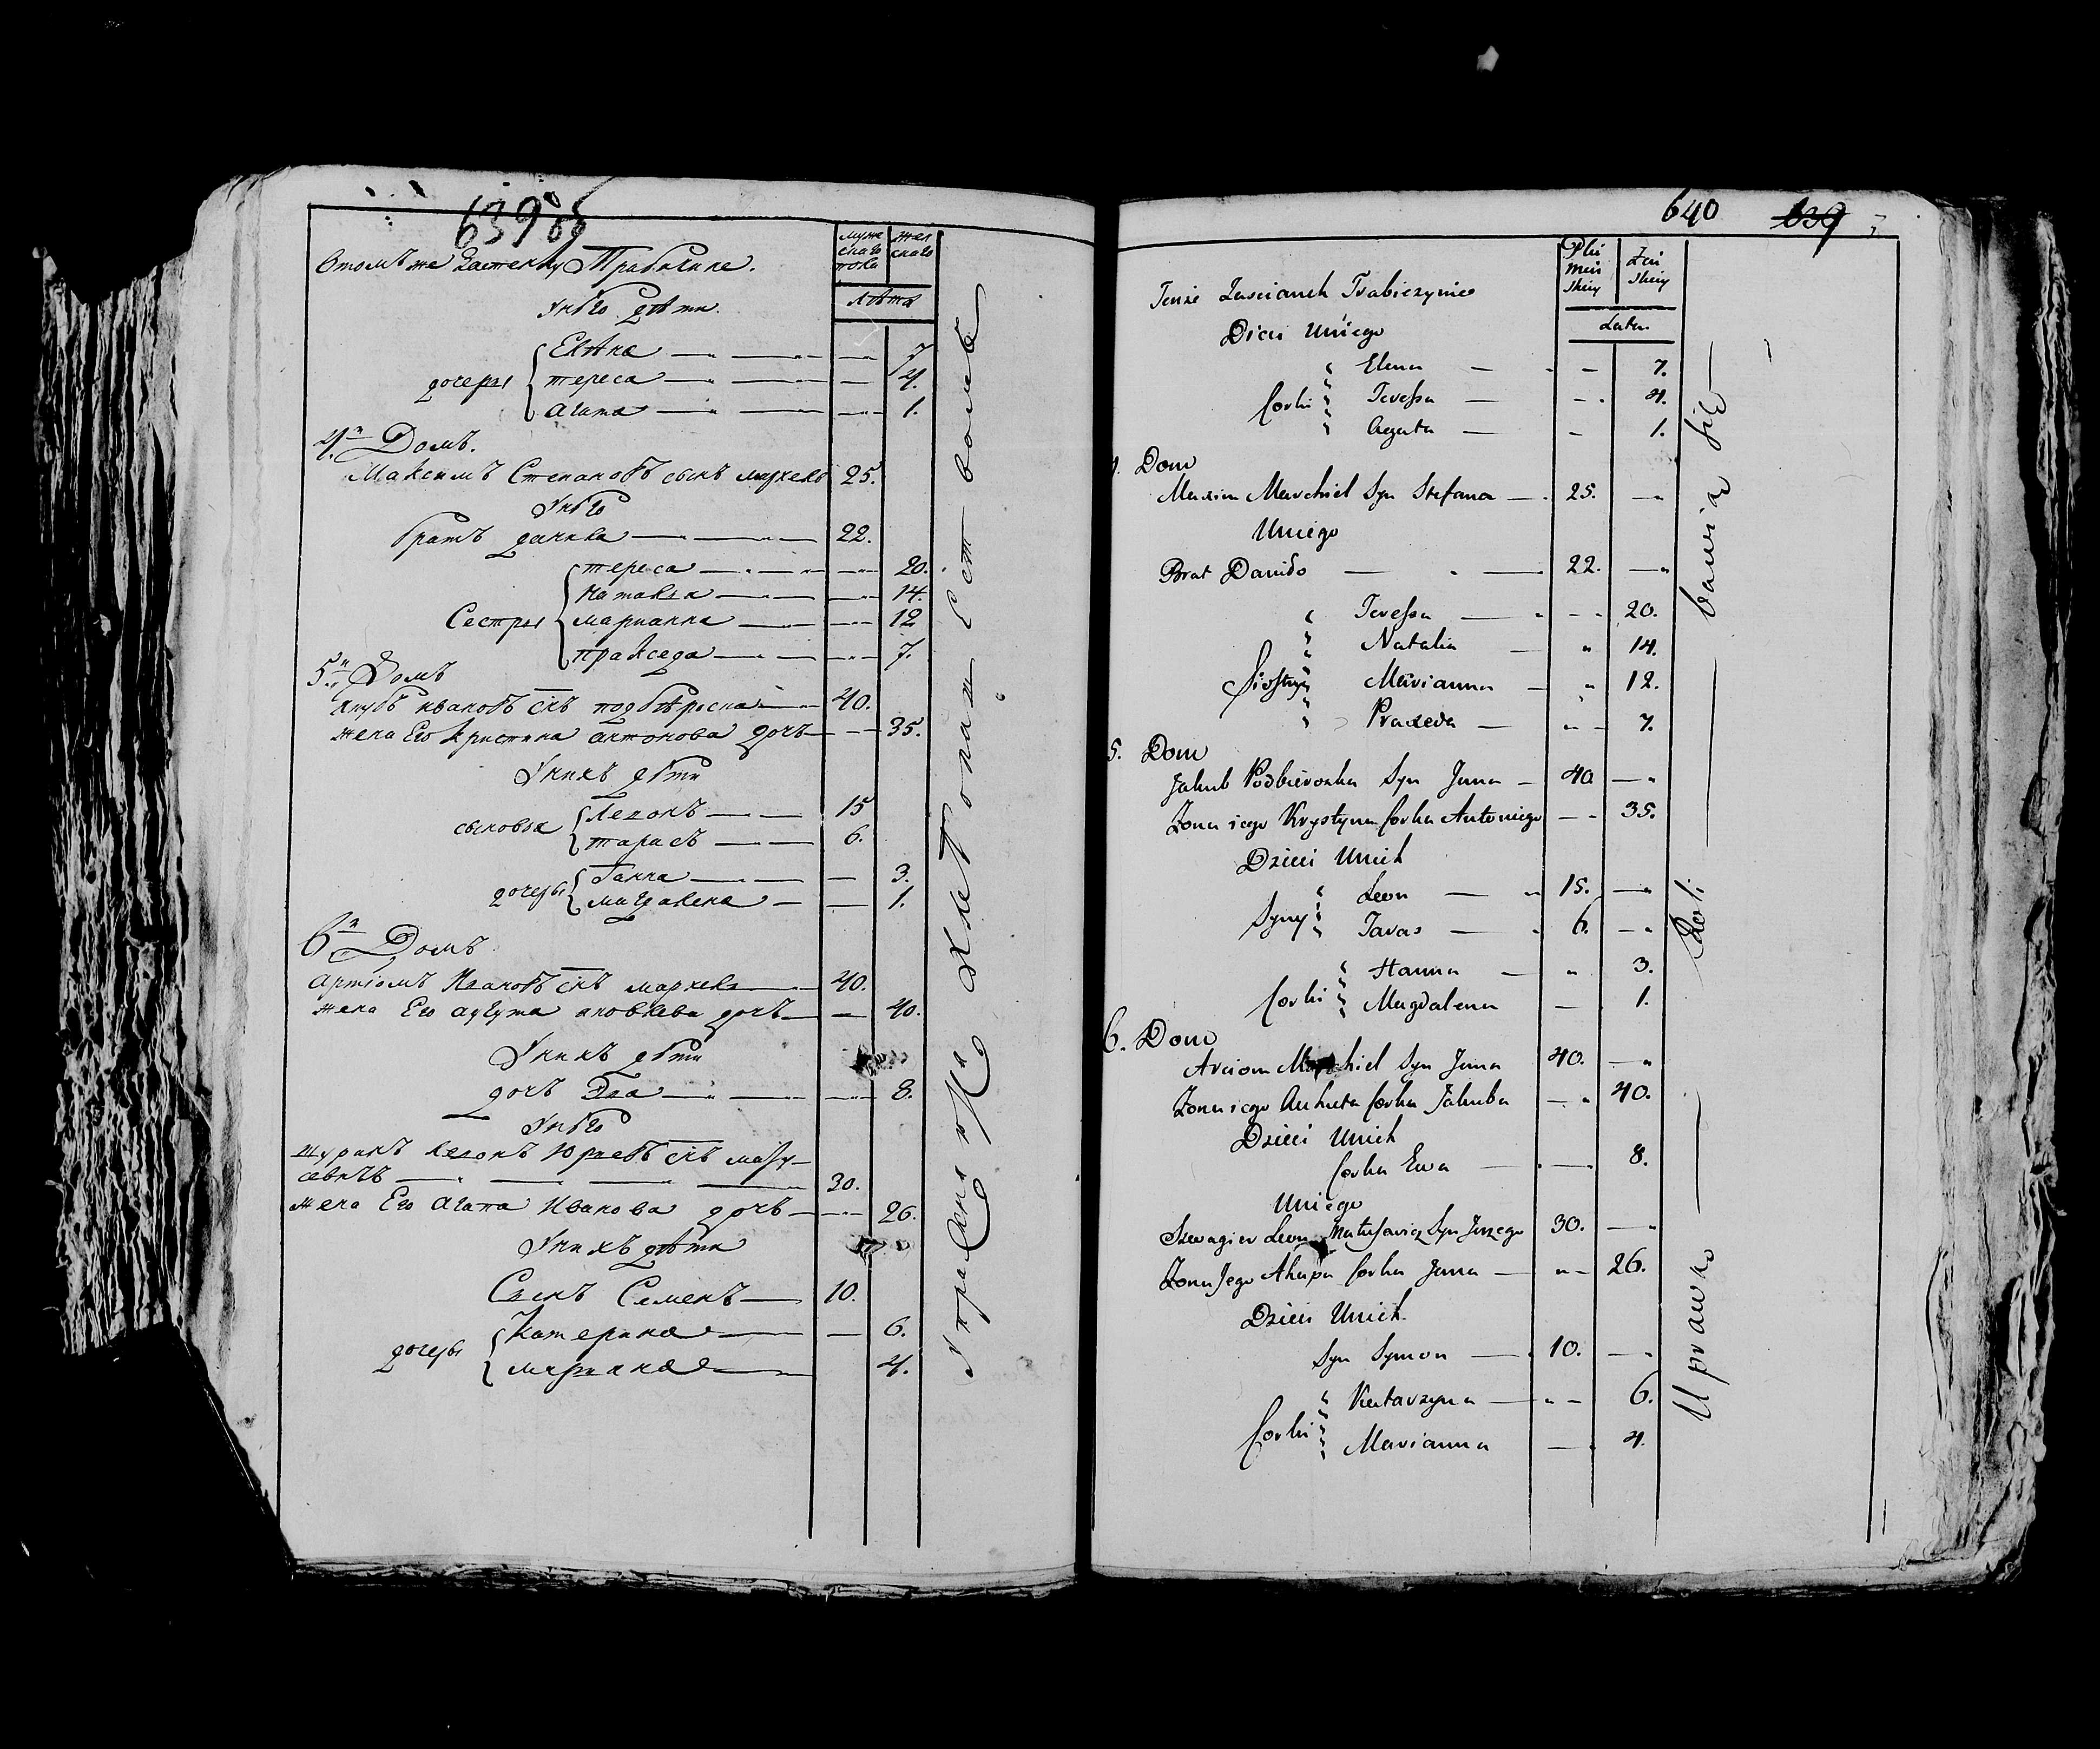 639 об
Втомъ же Застенку Трабичине.
муже
скаго
пола
жен
скаго
Лѣта
Унѣго дѣти.
дочеры
Елѣна 7
тереса 4.
агата 1.
4й Домъ.
Максимъ Степановъ сынъ мархель 25.
Унѣго
братъ данила 22.
Сестры
тереса 20.
Наталья 14.
марианна 12
праkседа 7.
5й Домъ
Якубъ ивановъ снъ подбѣрска 40.
жена Его Кристина антонова дочь 35.
Унихъ дѣти
сыновья
Леонъ 15
тарасъ 6.
дочеры
Ганна 3.
магдалена 1.
6й Домъ
артіомъ Ивановъ снъ мархель 40.
жена Его агута дочь 40.
Унихъ дѣти
дочь Эва 8.
Унѣго
шуринъ Леонъ Юрьевъ снъ мату-
севичъ 30.
жена Его агапа Иванова дочь 26.
Унихъ дѣти
Сынъ Семенъ 10.
дочеры
Катерина 6.
мариана 4.
Упражняются Хлебопашеством
640 639
Tenże Zascianek Trabiczynie
Płci
męs
kiey
żeń
skiey
Lata
Dieci Uniego
Corki
Elena 7.
Teressa 4.
Agata 1.
4. Dom
Maxim Marchiel Syn Stefana 25.
Uniego
Brat Daniło 22.
Siostry
Teressa 20.
Natalia 14.
Marianna 12.
Praxeda 7.
5. Dom
Jakub Podbierozka Syn Jana 40
Zona iego Krystyna Corka Antoniego 35.
Dzieci Unich
Syny
Leon 15.
Taras 6.
Corki
Hanna 3.
Magdalena 1.
6. Dom
Arciom Marchiel Syn Jana 40.
Zona iego Auhuta Corka Jakuba 40.
Dzieci Unich
Corka Ewa 8.
Uniego
Szwagier Leon Matusewicz Syn Jerzego 30.
Zona Jego Ahapa Corka Jana 26.
Dzieci Unich.
Syn Symon 10.
Corki
Katarzyna 6.
Marianna 4.
Uprawą Roli bawią się